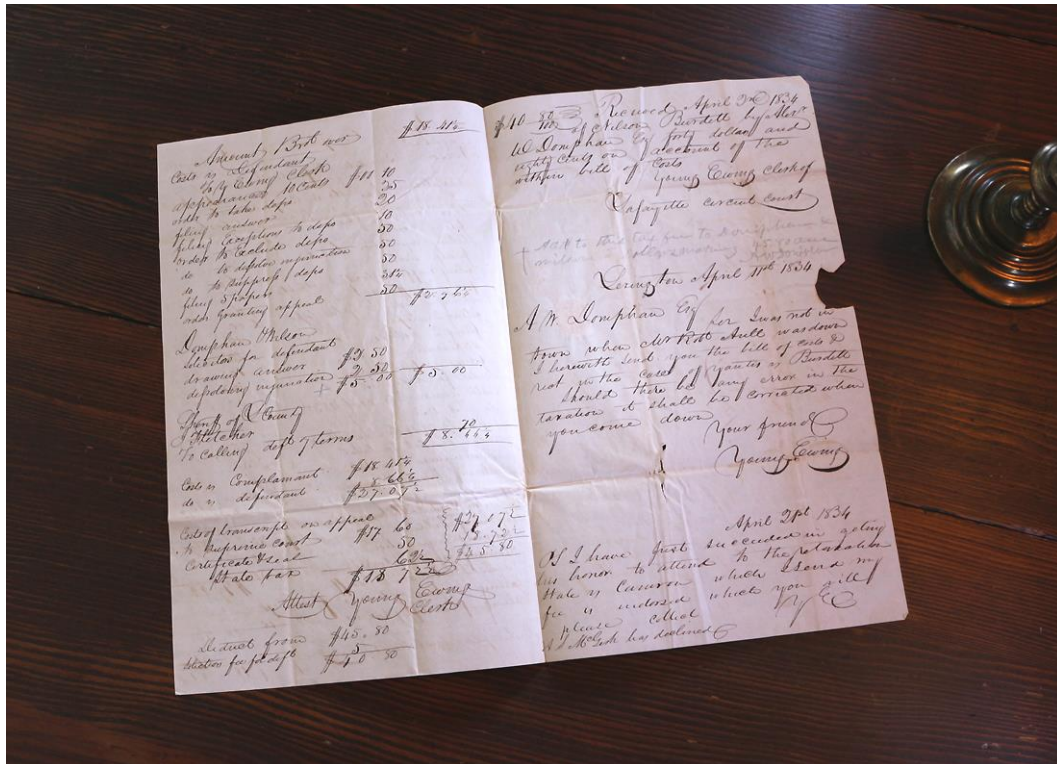 Amount Brot over $18.41½
Costs vs Defendant
To Y Ewing Clerk
appearance 10 cents $00 10
order to take depo 35
filing answer 20
filing exceptions to depo 10
order to exclude depo 50
do to dissolve injunction 50
do to suppress depo 50
filing 5 papers 31¼
order granting appeal 50
Doniphan & Wilson
Solicitor for defendant
drawing answer $2 50
dissolving injunction 2 50
$5.00 $5.00
Sheriff of County
Fletcher
To calling deft 7 terms 70
$8.66¼
Costs vs Complainant $18.41½
do vs defendant 8.66¼
$27.07½
Costs of transcript on appeal
to Supreme court $17 60 $27.07½
Certificate & seal 50
State tax 62½ $45.80
$18 72½
Attest Young Ewing
Clerk
Deduct from $45.80
Solicitors fee for deft 5
$40 80
$40 80 Received April 3rd 1834
of Nelson Burdett by Alexr
W Doniphan Esq forty dollars and
eighty cents on account of the
within bill of costs
Young Ewing clerk of
Lafayette circuit court
Lexington April 11th 1834
A W. Doniphan Esq
Sir I was not in
town when Mr Robt Aull was down
I herewith send you the bill of costs &
rect in the case of Yantes vs Burdett
Should there be any error in the
taxation it shall be corrected when
you come down
Your friend
Young Ewing
April 21st 1834
PS I have just succeeded in geting
his honor to attend to the
State vs which I send my
fee is indorsed which you will
please collect
YE
has declined